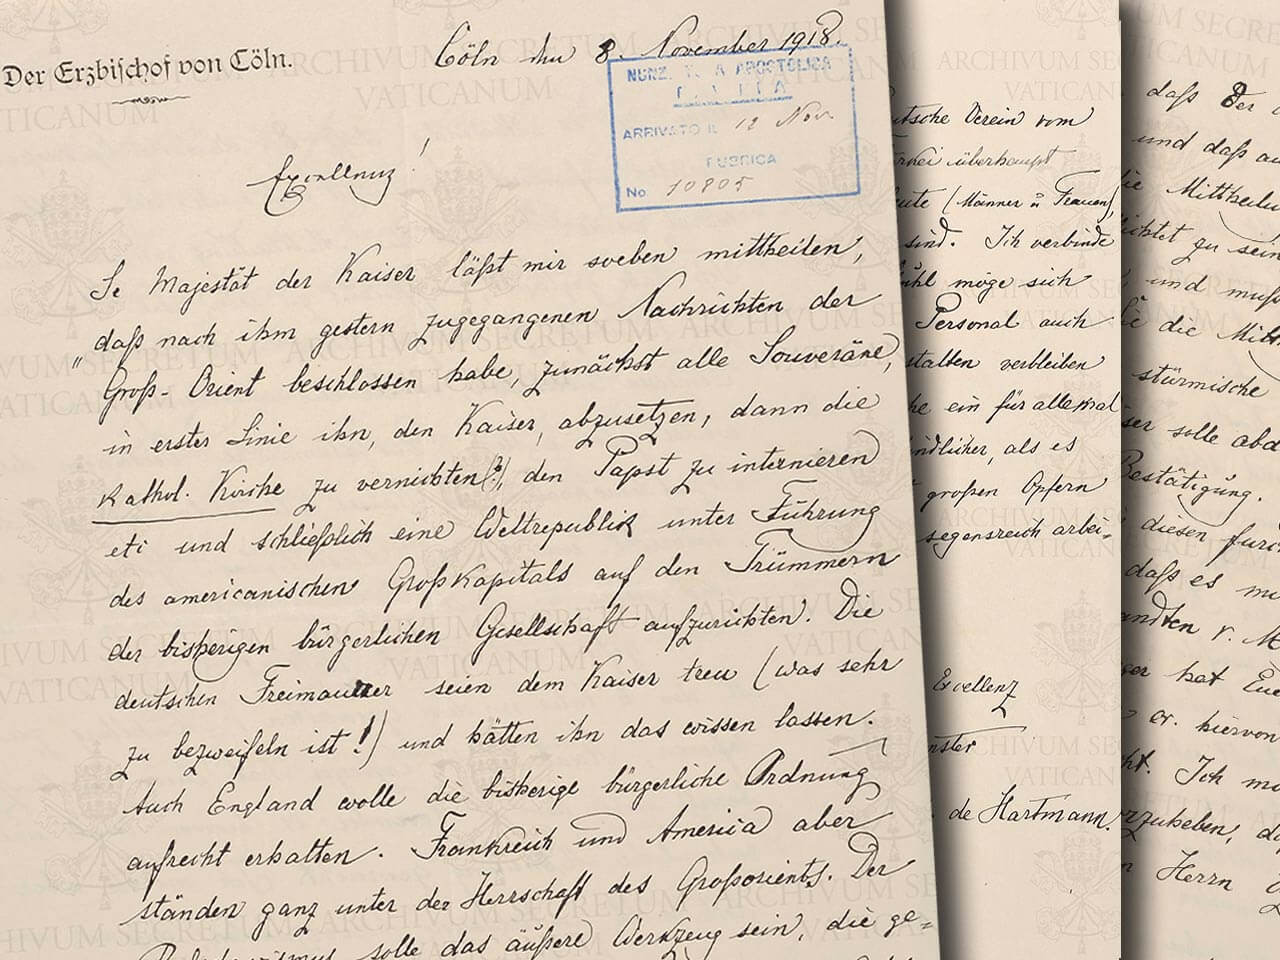 Der Erzbischof von Cöln.
Cöln den 8. November 1918.
NUNZ. APOSTOLICA
ARRIVATO IL 12 Nov.
RUBRICA
No 10805
Excellenz!
Se Majestät der Kaiser läßt mir soeben mittheilen,
"daß nach ihm gestern zugegangenen Nachrichten der
Groß-Orient beschlossen habe, zunächst alle Souveräne,
in erster Linie ihn, den Kaiser, abzusetzen, dann die
kathol. Kirche zu vernichten(?), den Papst zu internieren
etc und schließlich eine Weltrepublik unter Führung
des americanischen Großkapitals auf den Trümmern
der bisherigen bürgerlichen Gesellschaft aufzurichten. Die
deutschen Freimaurer seien dem Kaiser treu (was sehr
zu bezweifeln ist!) und hätten ihn das wissen lassen.
Auch England wolle die bisherige bürgerliche Ordnung
aufrecht erhalten. Frankreich und America aber
ständen ganz unter der Herrschaft des Großorients. Der
Bolschewismus solle das äußere Werkzeug sein, die ge=
utsche Verein vom
rkei überhaupt
eute (Männer u Frauen),
sind. Ich verbinde
möge sich
Personal auch
stalten verbleiben
he ein für allemal
ndlicher, als es
großen Opfern
segensreich arbei=
Excellenz
nster
de Hartmann.
daß der
und daß au
die Mittheilu
ichtet zu sein
und muß
die Mitt
stürmische
ser solle abd
Bestätigung.
diesen furc
daß es mi
andten v. M
ger hat Eue
er. hiervon
ht. Ich m
rzuheben, d
Herrn
ARCHIVUM SECRETUM
VATICANUM